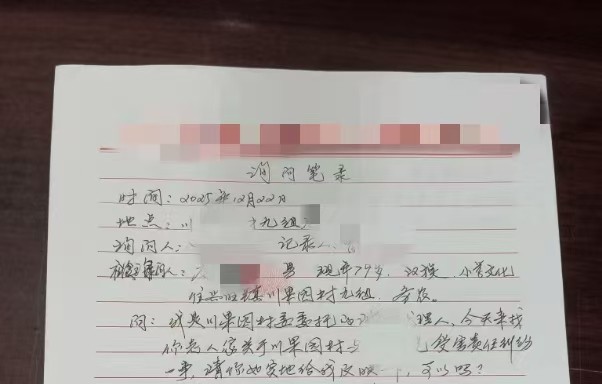 询问笔录
时间：2025年12月22日
地点：川 九组
询问人： 记录人
被询问人： 男 现年79岁，汉族，小学文化
住 川果园村九组，务农。
问：我是川果园村委委托的 理人，今天来找
你老人家关于川果园村与 侵害责任纠纷
一事，请你如实地给我反映一下，可以吗？